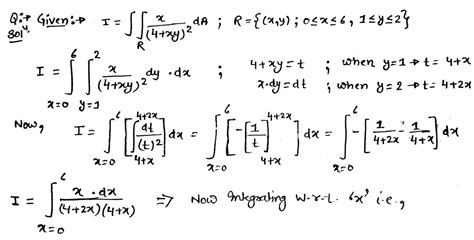 Q:→ Given:→ I = ∬_R x/(4+xy)² dA ; R = {(x,y) ; 0≤x≤6, 1≤y≤2}
Solⁿ.
I = ∫_{x=0}^{6} ∫_{y=1}^{2} x/(4+xy)² dy · dx ; 4+xy = t ; when y=1 → t = 4+x
x·dy = dt ; when y=2 → t = 4+2x
Now, I = ∫_{x=0}^{6} [∫_{4+x}^{4+2x} dt/(t)²] dx = ∫_{x=0}^{6} [-[1/t]_{4+x}^{4+2x}] dx = ∫_{x=0}^{6} -[1/(4+2x) - 1/(4+x)] dx
I = ∫_{x=0}^{6} x·dx/((4+2x)(4+x)) ⇒ Now Integrating w.r.t. 'x' i.e.,